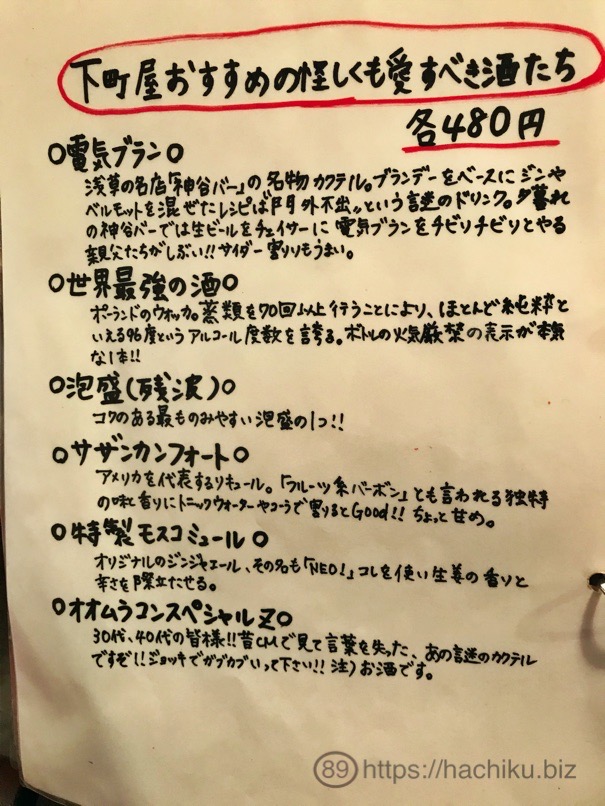 下町屋おすすめの怪しくも愛すべき酒たち
各480円
○電気ブラン○
浅草の名店「神谷バー」の名物カクテル。ブランデーをベースにジンや
ベルモットを混ぜたレシピは"門外不出"という謎のドリンク。夕暮れ
の神谷バーでは生ビールをチェイサーに電気ブランをチビリチビリとやる
親父たちがしぶい!!サイダー割りもうまい。
○世界最強の酒○
ポーランドのウォッカ。蒸類を70回以上行うことにより、ほとんど純粋と
いえる96度というアルコール度数を誇る。ボトルの火気厳禁の表示が本気
な1本!!
○泡盛(残波)○
コクのある最ものみやすい泡盛の1つ!!
○サザンカンフォート○
アメリカを代表するリキュール。「フルーツ系バーボン」とも言われる独特
の味と香りにトニックウォーターやコーラで割るとGood!!ちょっと甘め。
○特製モスコミュール○
オリジナルのジンジャエール、その名も「NEO!」コレを使い生姜の香りと
辛さを際立たせる。
○オオムラコンスペシャルZ○
30代、40代の皆様!!昔CMで見て言葉を失った、あの謎のカクテル
ですぞ!!ジョッキでガブガブいって下さい!!注)お酒です。
89 https://hachiku.biz